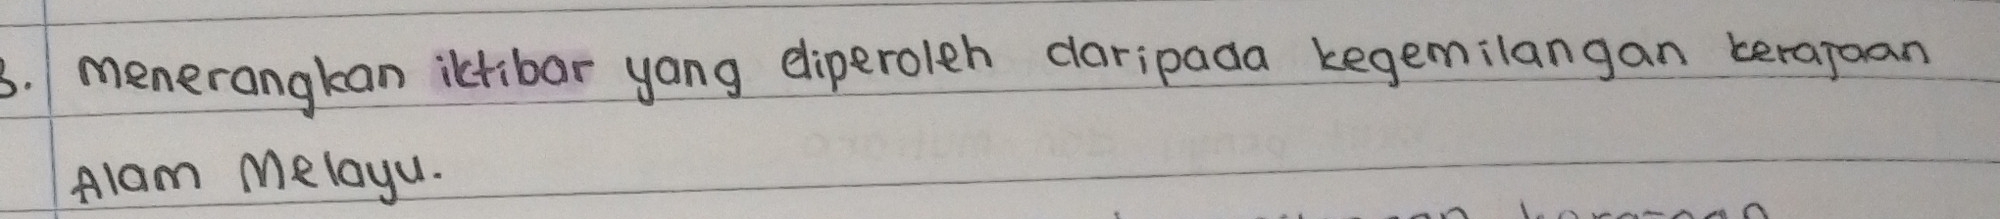 3. Menerangkan iktibar yang diperoleh daripada kegemilangan kerajaan
Alam Melayu.